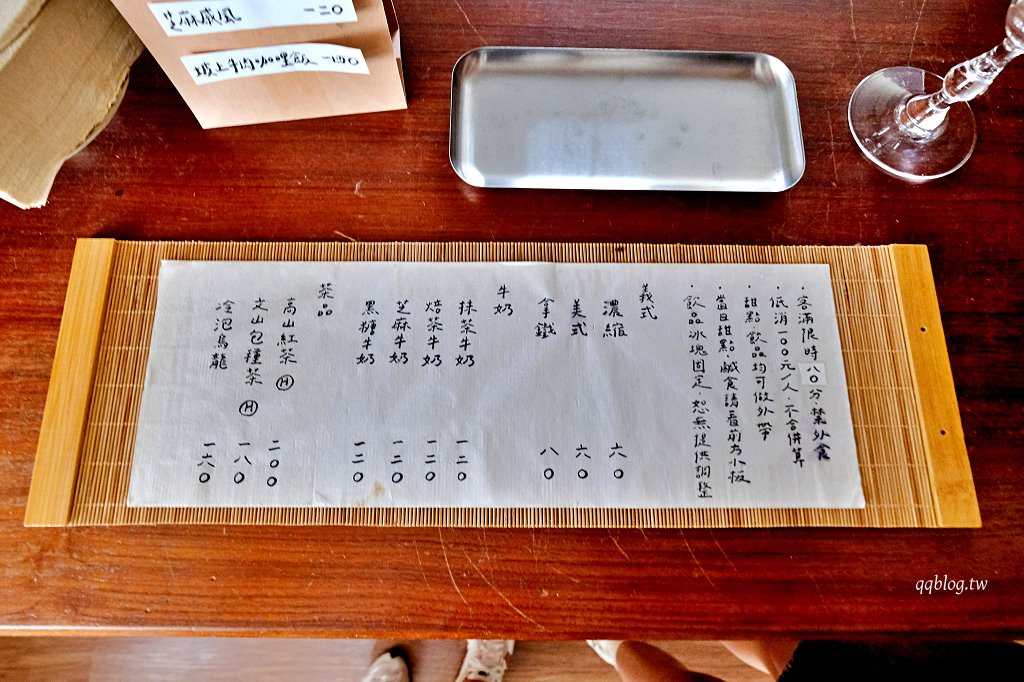 芝麻戚風 一二〇
坡上牛肉咖哩飯 一四〇
·客滿限時八〇分·禁外食
·低消一〇〇元/人·不合併算
·甜點·飲品均可做外帶
·當日甜點·鹹食請看前方小板
·飲品冰塊固定·恕無提供調整
義式
濃縮 六〇
美式 六〇
拿鐵 八〇
牛奶
抹茶牛奶 一二〇
焙茶牛奶 一二〇
芝麻牛奶 一二〇
黑糖牛奶 一二〇
茶品
高山紅茶 Ⓗ 二〇〇
文山包種茶 Ⓗ 一八〇
冷泡烏龍 一六〇
qqblog.tw